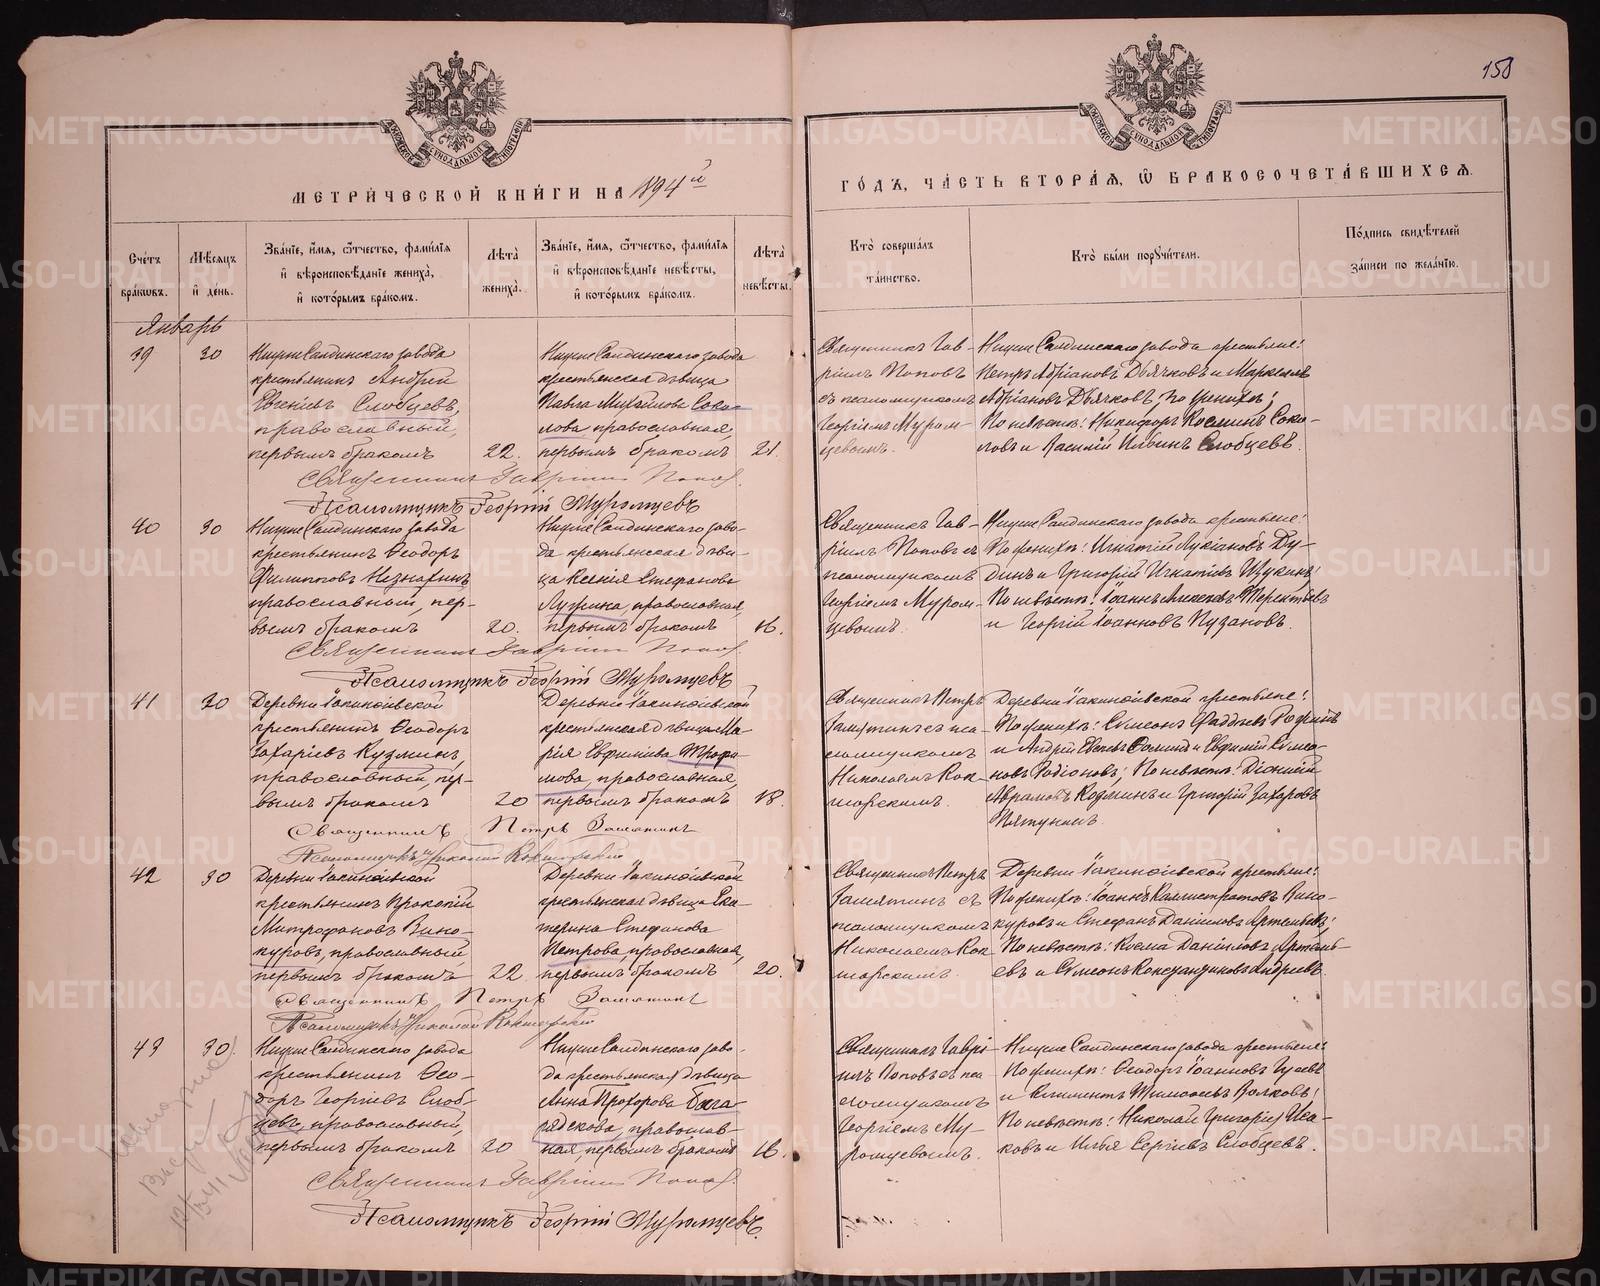 158
МЕТРИЧЕСКОЙ КНИГИ НА 1894й
ГОДЪ, ЧАСТЬ ВТОРАЯ, Ѡ БРАКОСОЧЕТАВШИХСЯ.
Счетъ браковъ.
Мѣсяцъ и день.
Званіе, имя, ѿчество, фамилія
и вѣроисповѣданіе жениха,
и которымъ бракомъ.
Лѣта
жениха.
Званіе, имя, ѿчество, фамилія
и вѣроисповѣданіе невѣсты,
и которымъ бракомъ.
Лѣта
невѣсты.
Кто совершалъ
таинство.
Кто были поручители.
Подпись свидѣтелей
записи по желанію.
Январь
39
30
Нижне Салдинскаго завода
крестьянинъ Андрей
Евгеніевъ Слобцевъ,
православный,
первымъ бракомъ
22.
Нижне Салдинскаго завода
крестьянская дѣвица
Павла Михайлова Соко-
лова, православная,
первымъ бракомъ
21.
Священникъ Гав-
ріилъ Поповъ
съ псаломщикомъ
Георгіемъ Муром-
цевымъ.
Нижне Салдинскаго завода крестьяне:
Петръ Адріановъ Дьячковъ и Маркеллъ
Адріановъ Дьячковъ, по женихѣ;
По невѣстѣ: Никифоръ Косминъ Соко-
ловъ и Василій Ильинъ Слобцевъ.
Священникъ Гавріилъ Поповъ.
Псаломщикъ Георгій Муромцевъ
40
30
Нижне Салдинскаго завода
крестьянинъ Ѳеодоръ
Филипповъ Незнахинъ
православный, пер-
вымъ бракомъ
20.
Нижне Салдинскаго заво-
да крестьянская дѣви-
ца Ксенія Стефанова
православная,
первымъ бракомъ
16.
Священникъ Гав-
ріилъ Поповъ съ
псаломщикомъ
Георгіемъ Муром-
цевымъ.
Нижне Салдинскаго завода крестьяне:
По женихѣ: Игнатій Лукіановъ Ду-
динъ и Григорій Игнатіевъ Щукинъ;
По невѣстѣ: Іоаннъ Алексѣевъ Терентьевъ
и Георгій Іоанновъ Пузановъ.
Священникъ Гавріилъ Поповъ.
Псаломщикъ Георгій Муромцевъ
41
30
Деревни Іакинѳіевской
крестьянинъ Ѳеодоръ
Захаріевъ Кузминъ,
православный, пер-
вымъ бракомъ
20
Деревни Іакинѳіевской
крестьянская дѣвица Ма-
рія Евфиміева Трофи-
мова, православная,
первымъ бракомъ
18.
Священникъ Петръ
Замятинъ съ пса-
ломщикомъ
Николаемъ Кок-
шарскимъ.
Деревни Іакинѳіевской крестьяне:
По женихѣ: Сѵмеонъ Ѳаддѣевъ
и Андрей и Евфимій Сѵмео-
новъ Родіоновъ; По невѣстѣ: Діонисій
Аврамовъ Кодминъ и Григорій Захаровъ
Пятунинъ.
Священникъ Петръ Замятинъ
Псаломщикъ Николай Кокшарскій
42
30
Деревни Іакинѳіевской
крестьянинъ Прокопій
Митрофановъ Вино-
куровъ, православный
первымъ бракомъ
22.
Деревни Іакинѳіевской
крестьянская дѣвица Ека-
терина Стефанова
Петрова, православная,
первымъ бракомъ
20.
Священникъ Петръ
Замятинъ съ
псаломщикомъ
Николаемъ Кок-
шарскимъ.
Деревни Іакинѳіевской крестьяне:
По женихѣ: Іоаннъ Каллистратовъ Вино-
куровъ и Стефанъ Даніиловъ Артемьевъ;
По невѣстѣ: Косма Даніиловъ Артемь-
евъ и Сѵмеонъ Константиновъ Андреевъ.
Священникъ Петръ Замятинъ
Псаломщикъ Николай Кокшарскій
43
30.
Нижне Салдинскаго завода
крестьянинъ Ѳео-
доръ Георгіевъ Слоб-
цевъ, православный,
первымъ бракомъ
20
Нижне Салдинскаго заво-
да крестьянская дѣвица
Анна Прохорова Бага-
рядскова, православ-
ная, первымъ бракомъ
16.
Священникъ Гаврі-
илъ Поповъ съ пса-
ломщикомъ
Георгіемъ Му-
ромцевымъ.
Нижне Салдинскаго завода крестьяне:
По женихѣ: Ѳеодоръ Іоанновъ Гусевъ
и Климентъ Тимоѳеевъ Волковъ;
По невѣстѣ: Николай Григорьевъ Иса-
ковъ и Илья Сергіевъ Слобцевъ.
Священникъ Гавріилъ Поповъ.
Псаломщикъ Георгій Муромцевъ.
METRIKI.GASO-URAL.RU